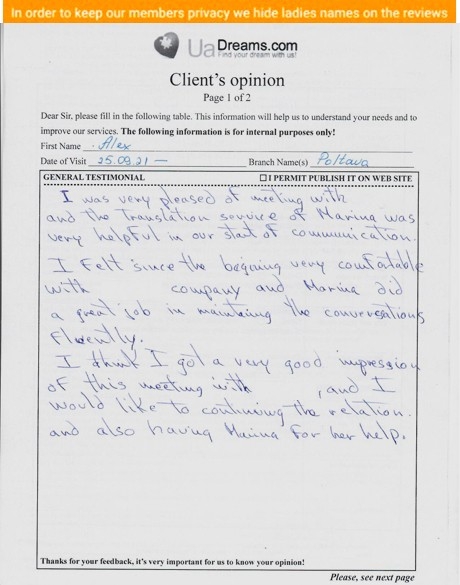 In order to keep our members privacy we hide ladies names on the reviews
UaDreams.com
Find your dream with us!
Client's opinion
Page 1 of 2
Dear Sir, please fill in the following table. This information will help us to understand your needs and to
improve our services. The following information is for internal purposes only!
First Name Alex
Date of Visit 25.09.21 — Branch Name(s) Poltava
GENERAL TESTIMONIAL ☐ I PERMIT PUBLISH IT ON WEB SITE
I was very pleased of meeting with
and the translation service of Marina was
very helpful in our start of communication.
I Felt since the begining very comfortable
with company and Marina did
a great job in maintaing the conversations
Fluently.
I think I got a very good impression
of this meeting with , and I
would like to continuing the relation.
and also having Marina For her help.
Thanks for your feedback, it's very important for us to know your opinion!
Please, see next page